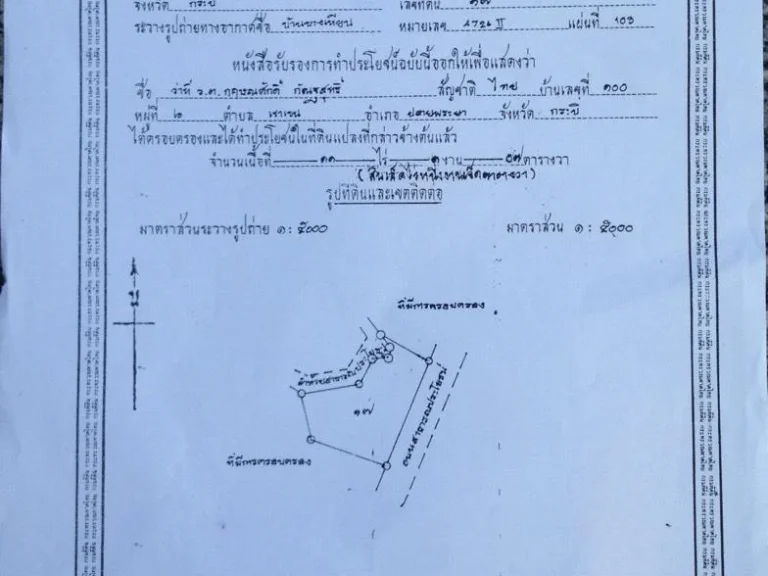 จังหวัด กระบี่ เลขที่ดิน ๑๗
ระวางรูปถ่ายทางอากาศชื่อ บ้านบางเหียน หมายเลข 4726 II แผ่นที่ 103
หนังสือรับรองการทำประโยชน์ฉบับนี้ออกให้เพื่อแสดงว่า
ชื่อ ว่าที่ ร.ต. สัญชาติ ไทย บ้านเลขที่ ๑๐๐
หมู่ที่ ๒ ตำบล เขาเขน อำเภอ ปลายพระยา จังหวัด กระบี่
ได้ครอบครองและได้ทำประโยชน์ในที่ดินแปลงที่กล่าวข้างต้นแล้ว
จำนวนเนื้อที่ ๑๑ ไร่ ๑ งาน ๐๗ ตารางวา
(สิบเอ็ดไร่หนึ่งงานเจ็ดตารางวา)
รูปที่ดินและเขตติดต่อ
มาตราส่วนระวางรูปถ่าย ๑ : ๕๐๐๐ มาตราส่วน ๑ : ๕๐๐๐
ที่มีการครอบครอง
ลำห้วยสาธารณประโยชน์
๑๗
ถนนสาธารณประโยชน์
ที่มีการครอบครอง